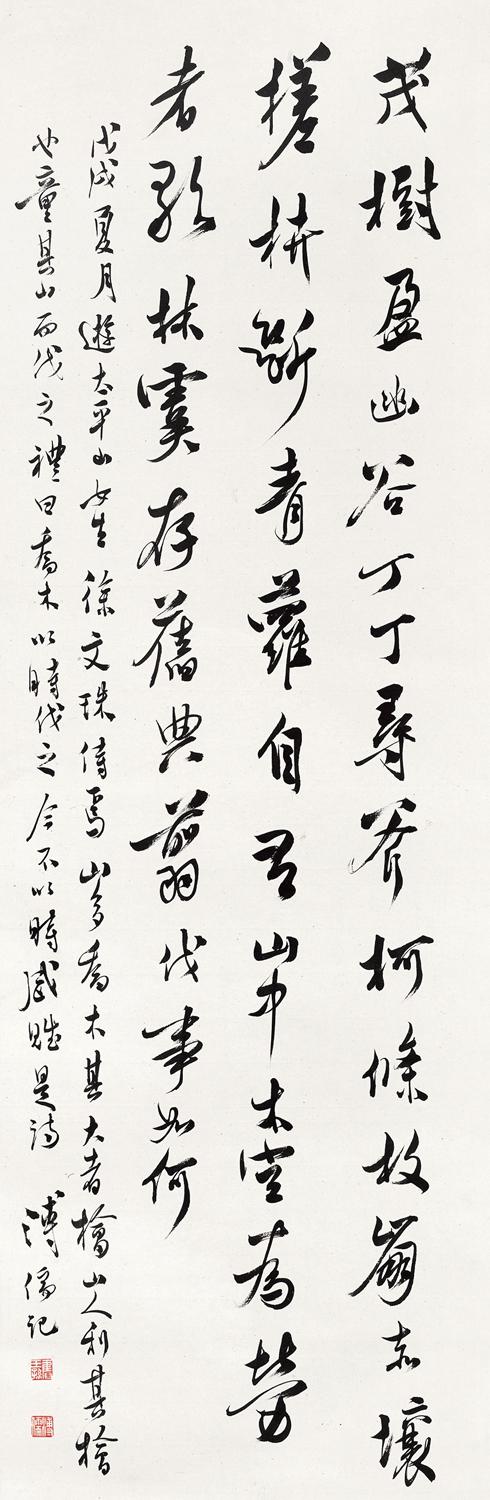 茂樹盈幽谷丁丁尋斧柯條枚崩赤壤
槎枿斷青蘿自有山中木空為勞
者歌林虞存舊典翦伐事如何
戊戌夏月遊太平山女生徐文珠侍焉山多喬木其大者檜山人利其檜
也童其山而伐之禮曰喬木以時伐之今不以時感賦是詩 溥儒記